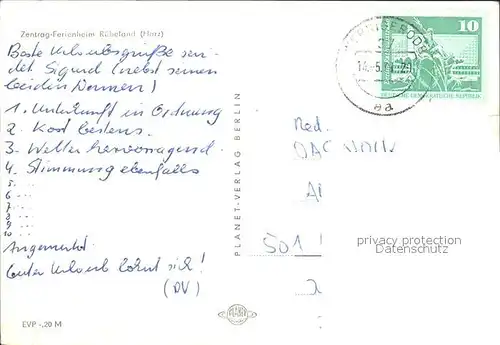 Zentrag-Ferienheim Rübeland (Harz)
Beste Urlaubsgrüße sen-
det Sigurd (nebst seinen
beiden Damen)
1. Unterkunft in Ordnung
2. Kost bestens.
3. Wetter hervorragend
4. Stimmung ebenfalls
5 ...
6 ...
7 ...
8 ...
9 ...
10 ...
Angemerkt:
Guter Urlaub lohnt sich!
(DV)
EVP -,20 M
PLANET-VERLAG BERLIN
WERNIGERODE
aa
10
DEUTSCHE DEMOKRATISCHE REPUBLIK
Red.
501
privacy protection
Datenschutz